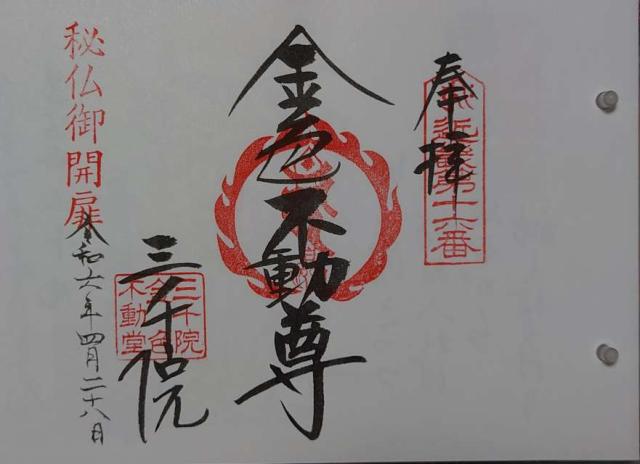 奉拝
近畿第十六番
金色不動尊
三千院
三千院
金色
不動堂
秘仏御開扉
令和六年四月二十八日